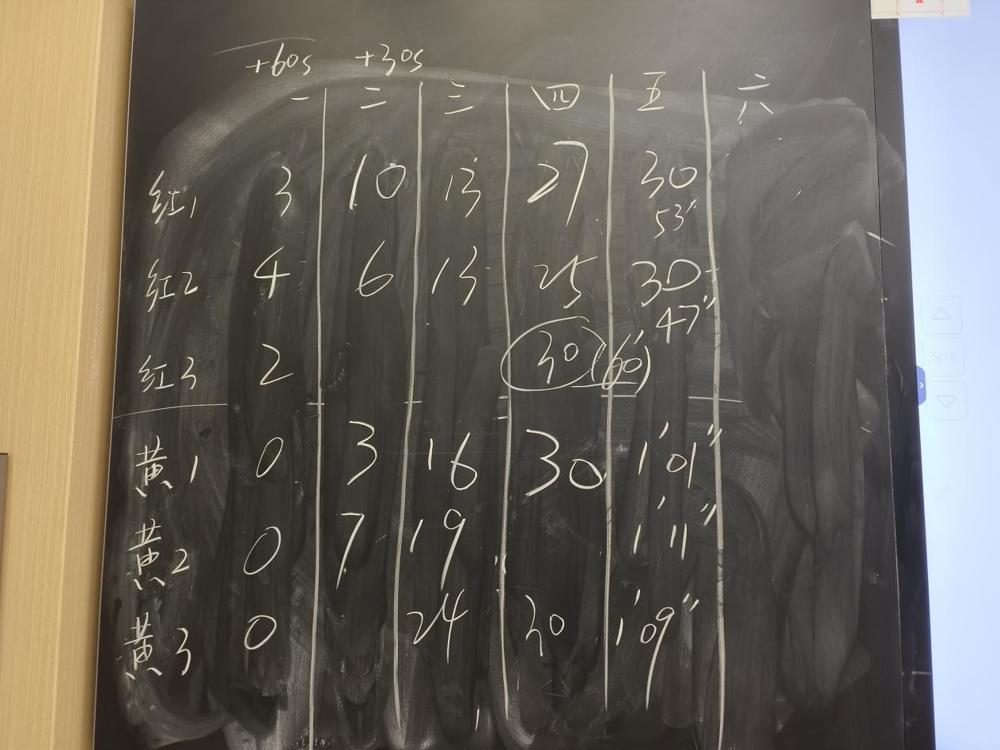 +60s +30s
一 二 三 四 五 六
红1 3 10 13 27 30
53"
红2 4 6 13 25 30
47"
红3 2 30 (60")
黄1 0 3 16 30 1'01"
黄2 0 7 19 1'11"
黄3 0 24 30 1'09"
5/18